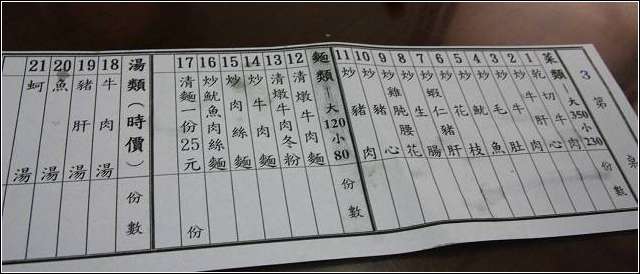 3 第 桌
菜類─大350小230
份數
1 乾切牛肉
2 炒牛心
3 炒牛肚
4 炒毛肚
5 炒魷魚
6 炒花枝
11 炒豬肉
份數
麵類─大120小80
12 清燉牛肉麵
13 清燉牛肉冬粉
14 炒牛肉麵
15 炒肉絲麵
16 炒魷魚肉絲麵
17 清麵一份25元
份
湯類(時價)
份數
18 牛肉湯
19 豬肝湯
20 魚湯
21 蚵湯